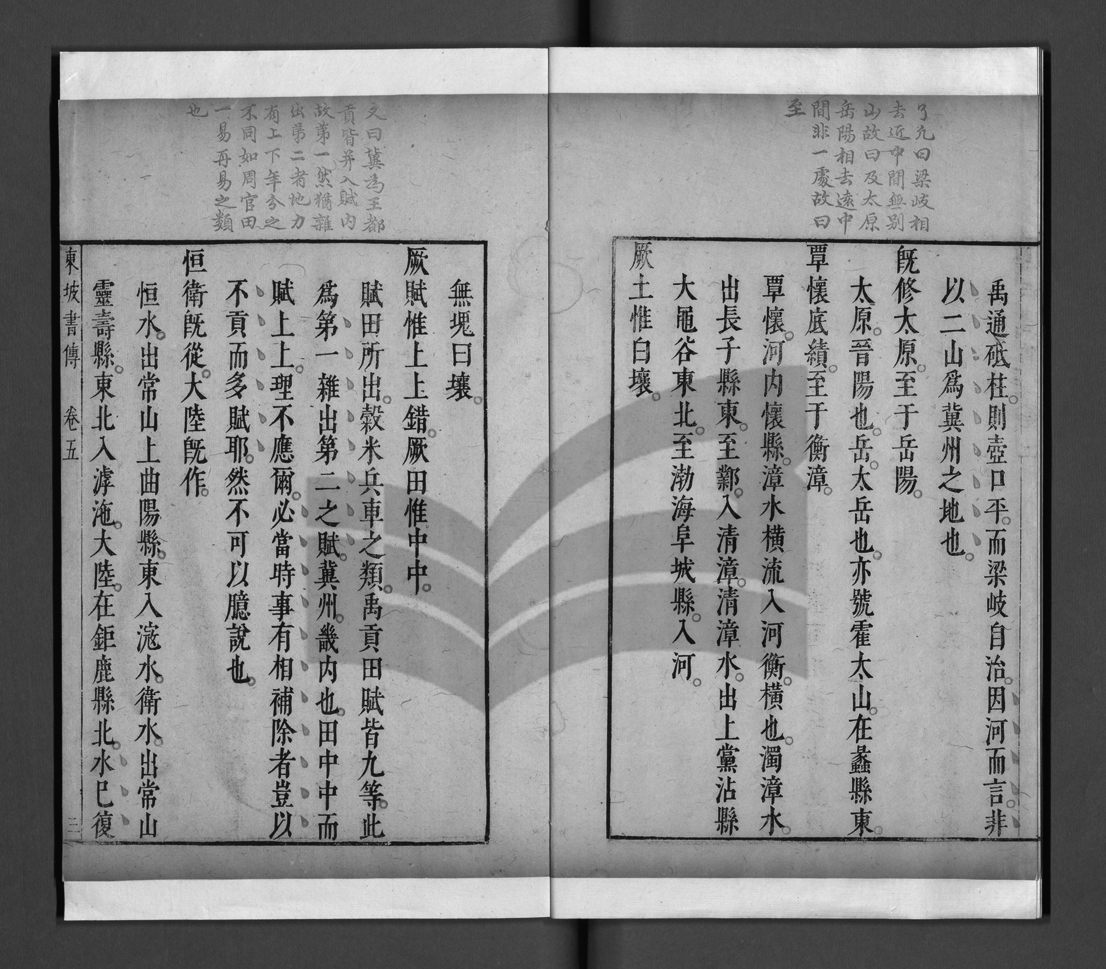 了凡曰梁岐相
去近中間無別
山故曰及太原
岳陽相去遠中
間非一處故曰
至
禹通砥柱則壺口平而梁岐自治因河而言非
以二山爲冀州之地也
既修太原至于岳陽
太原晉陽也岳太岳也亦號霍太山在彘縣東
覃懷底績至于衡漳
覃懷河内懷縣漳水橫流入河衡橫也濁漳水
出長子縣東至鄴入清漳清漳水出上黨沾縣
大黽谷東北至渤海阜城縣入河
厥土惟白壤
又曰冀爲王都
貢皆并入賦内
故第一然猶雜
出第二者地力
有上下年分之
不同如周官田
一易再易之類
也
無塊曰壤
厥賦惟上上錯厥田惟中中
賦田所出穀米兵車之類禹貢田賦皆九等此
爲第一雜出第二之賦冀州畿内也田中中而
賦上上理不應爾必當時事有相補除者豈以
不貢而多賦耶然不可以臆說也
恒衛既從大陸既作
恒水出常山上曲陽縣東入滱水衛水出常山
靈壽縣東北入滹沲大陸在鉅鹿縣北水已復
東坡書傳 卷五 三